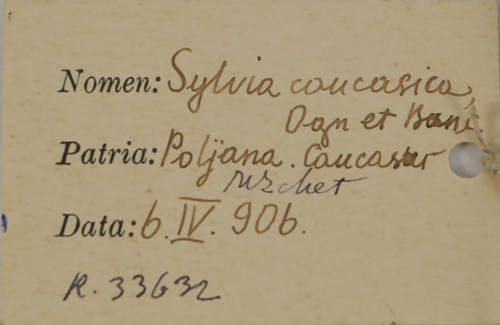 Nomen: Sylvia caucasica,
Ogn et Bank.
Patria: Poljana. Caucasus
Mzchet
Data: 6. IV. 906.
R. 33632